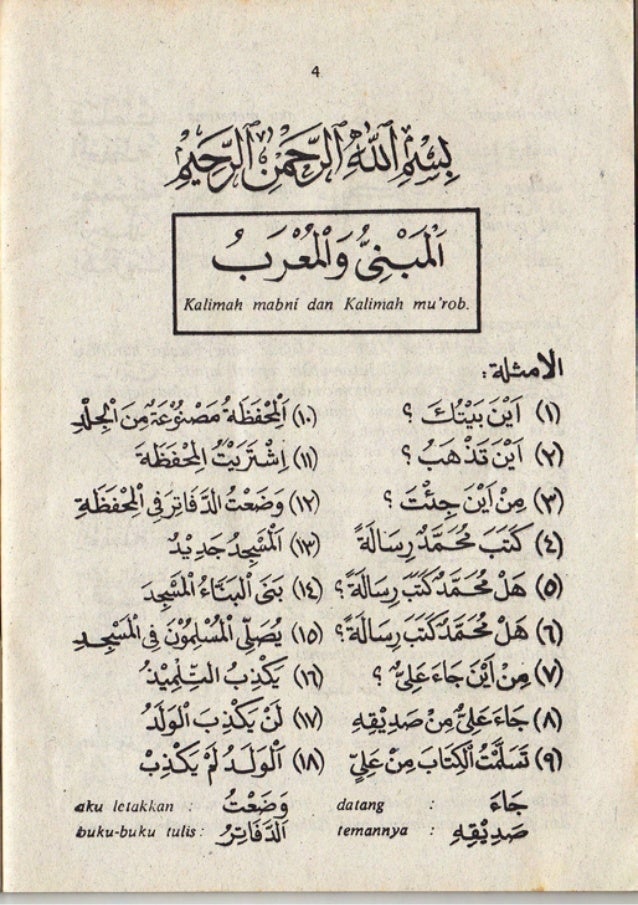 4
بِسْمِ اللهِ الرَّحْمٰنِ الرَّحِيْمِ
اَلْمَبْنِيُّ وَالْمُعْرَبُ
Kalimah mabni dan Kalimah mu'rob.
الامثلة :
(١) اَيْنَ بَيْتُكَ ؟
(٢) اَيْنَ تَذْهَبُ ؟
(٣) مِنْ اَيْنَ جِئْتَ ؟
(٤) كَتَبَ مُحَمَّدٌ رِسَالَةً
(٥) هَلْ مُحَمَّدٌ كَتَبَ رِسَالَةً ؟
(٦) هَلْ مُحَمَّدٌ كَتَبَ رِسَالَةً ؟
(٧) مِنْ اَيْنَ جَاءَ عَلِيٌّ ؟
(٨) جَاءَ عَلِيٌّ مِنْ صَدِيْقِهِ
(٩) تَسَلَّمْتُ الْكِتَابَ مِنْ عَلِيٍّ
(١٠) اَلْمِحْفَظَةُ مَصْنُوْعَةٌ مِنَ الْجِلْدِ
(١١) اِشْتَرَيْتُ الْمِحْفَظَةَ
(١٢) وَضَعْتُ الدَّفَاتِرَ فِى الْمِحْفَظَةِ
(١٣) اَلْمَسْجِدُ جَدِيْدٌ
(١٤) بَنَى الْبَنَّاءُ الْمَسْجِدَ
(١٥) يُصَلِّى الْمُسْلِمُوْنَ فِى الْمَسْجِدِ
(١٦) يَكْذِبُ التِّلْمِيْذُ
(١٧) لَنْ يَكْذِبَ الْوَلَدُ
(١٨) اَلْوَلَدُ لَمْ يَكْذِبْ
جَاءَ : datang
صَدِيْقِهِ : temannya
وَضَعْتُ : aku letakkan
اَلدَّفَاتِرُ : buku-buku tulis